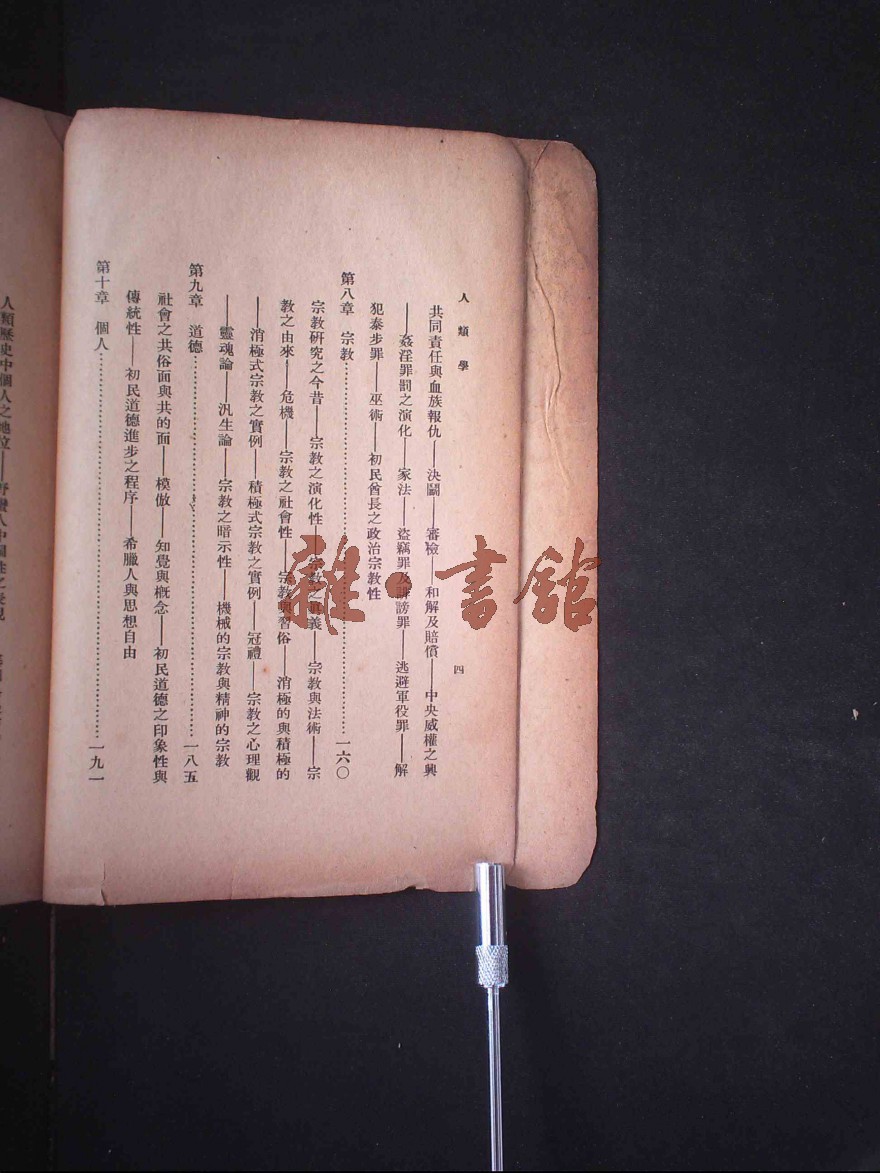 人類學
四
共同責任與血族報仇——決鬭——審檢——和解及賠償——中央威權之興
——姦淫罪罰之演化——家法——盜竊罪及誹謗罪——逃避軍役罪——解
犯泰步罪——巫術——初民酋長之政治宗教性
第八章 宗教……一六〇
宗教研究之今昔——宗教之演化性——宗教之眞義——宗教與法術——宗
教之由來——危機——宗教之社會性——宗教與習俗——消極的與積極的
——消極式宗教之實例——積極式宗教之實例——冠禮——宗教之心理觀
——靈魂論——汎生論——宗教之暗示性——機械的宗教與精神的宗教
第九章 道德……一八五
社會之共俗面與共的面——模倣——知覺與概念——初民道德之印象性與
傳統性——初民道德進步之程序——希臘人與思想自由
第十章 個人……一九一
人類歷史中個人之地位——野蠻人中個性之表現
雜·書館